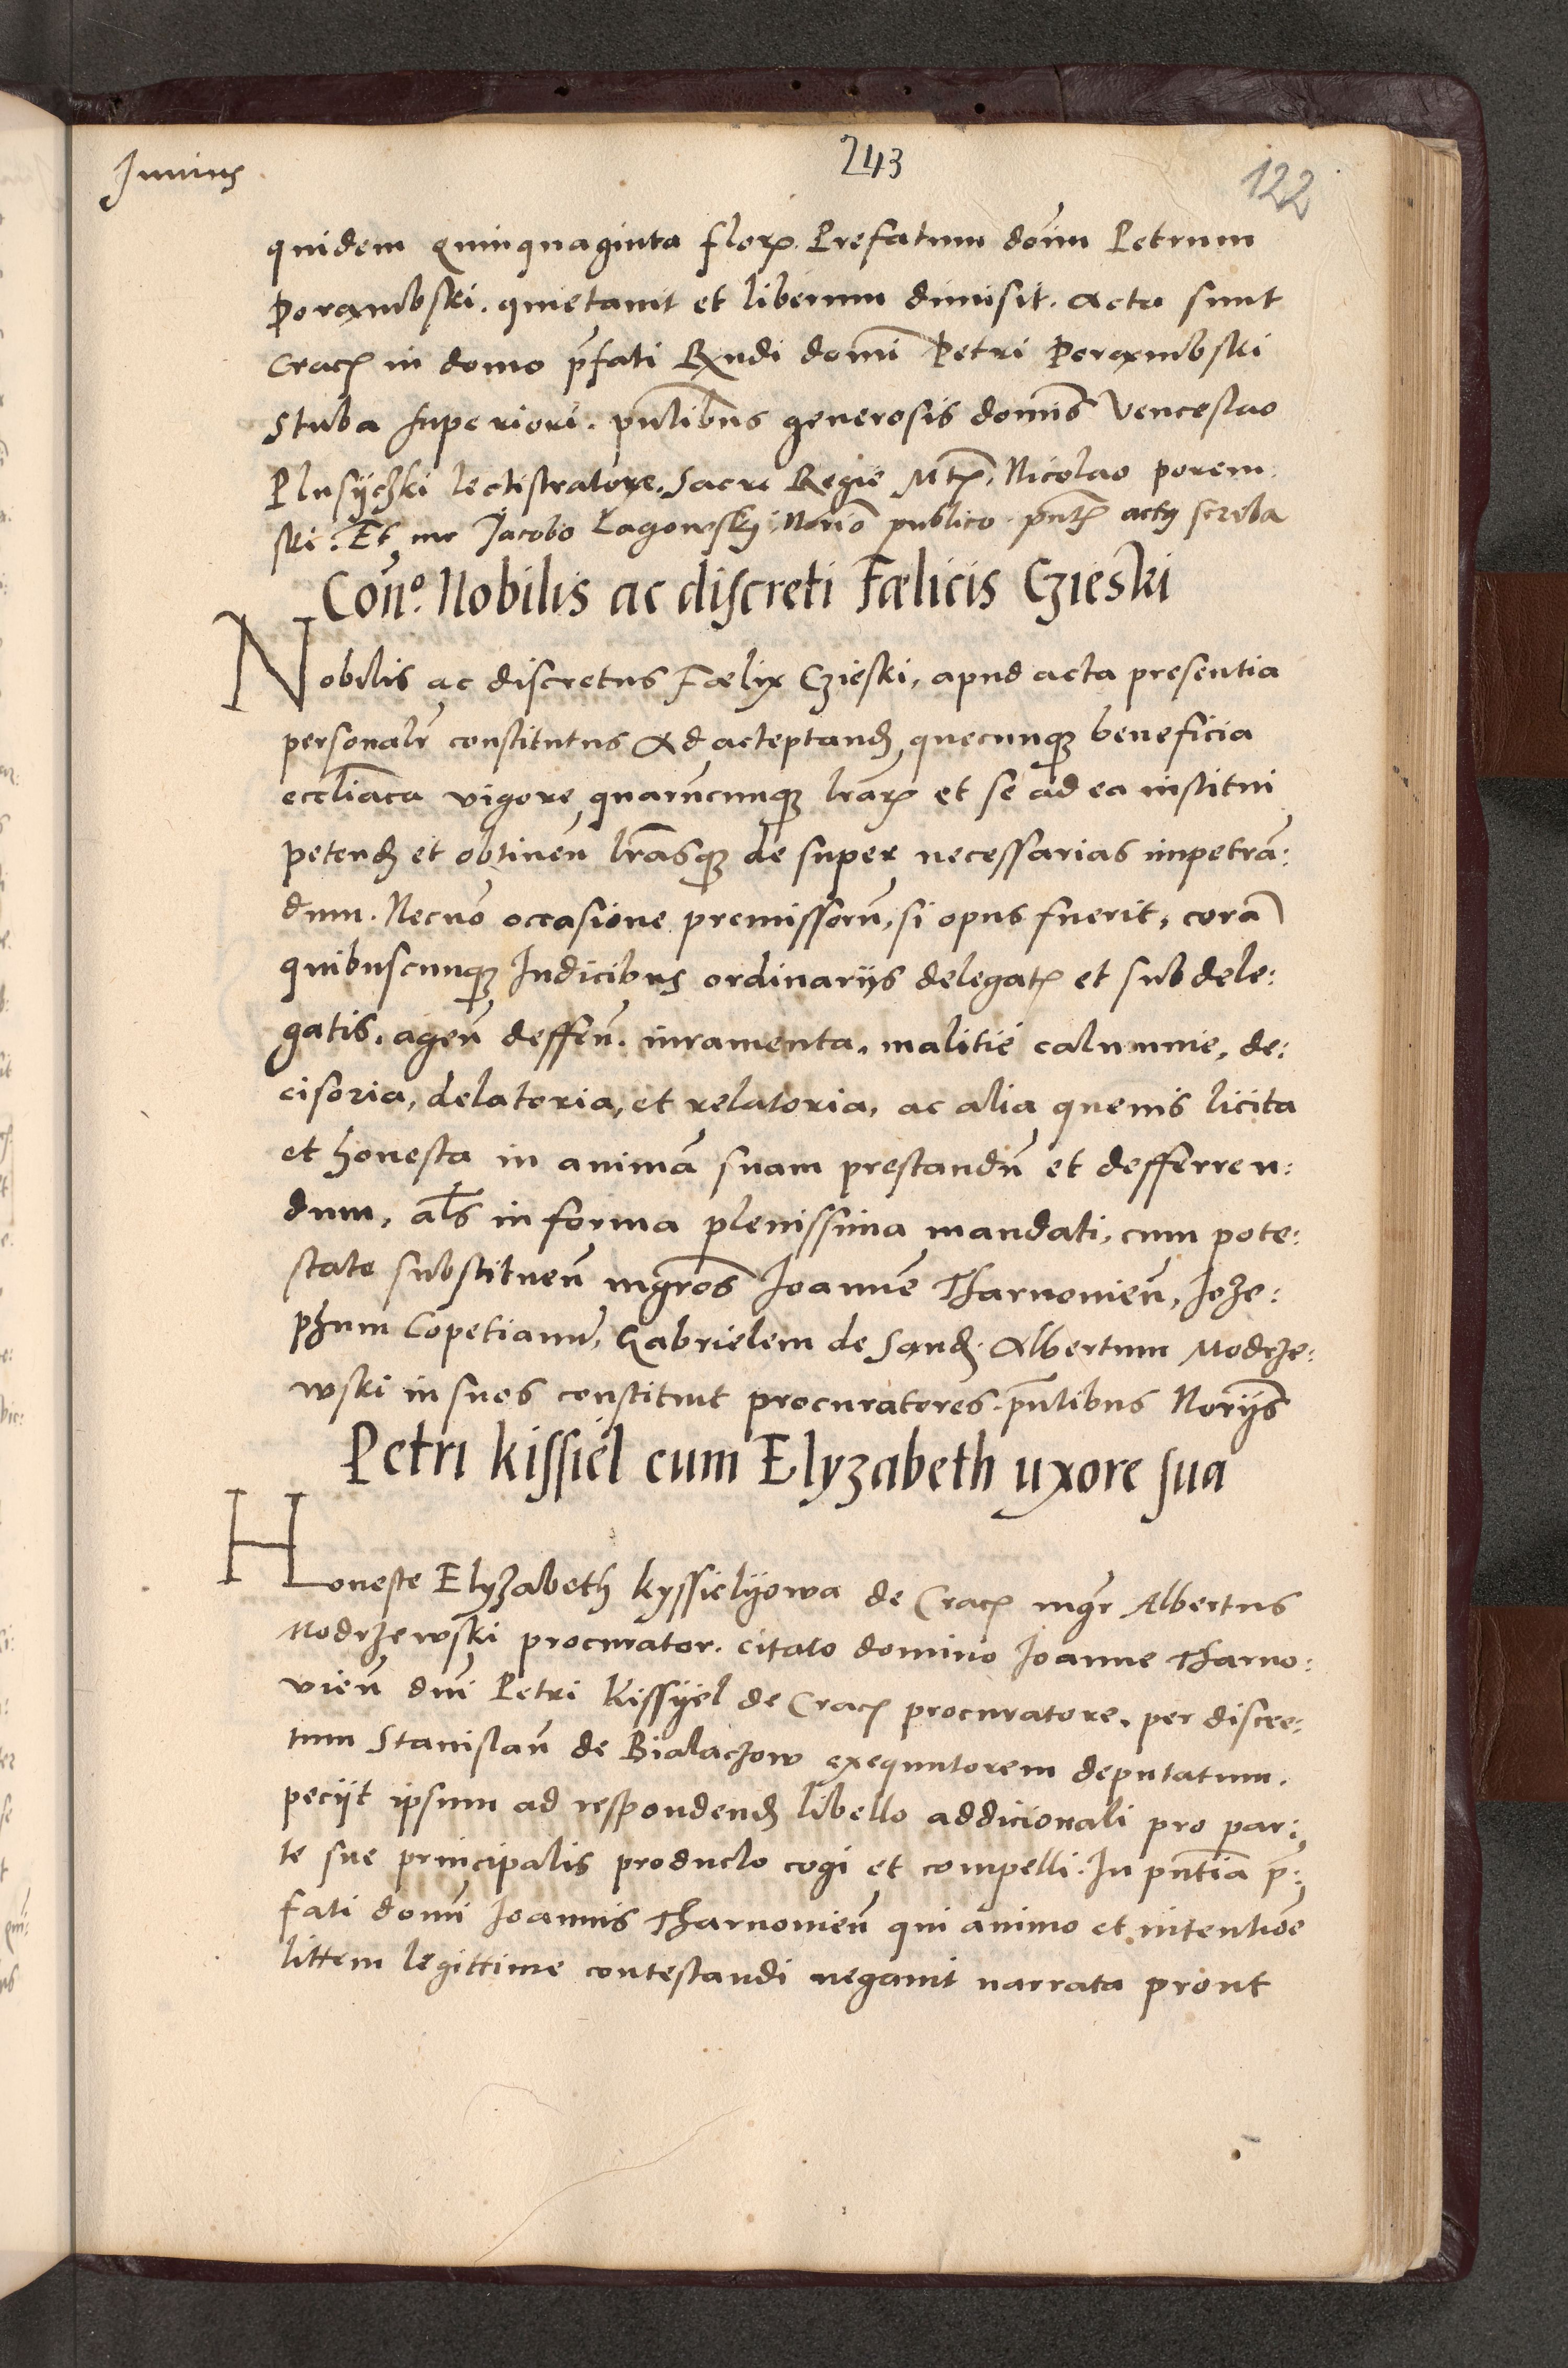 Junius
243
122
quidem quinquaginta floꝝ. Prefatum doīm Petrum
Porąmbski. quietauit et liberum dimisit. Acta sunt
Cracꝭ in domo p̄fati Rndi domī Petri Porąmbski
Stuba superiori. pn̄tibus generosis domīs Venceslao
Plusyczki lectistratore. Sacre Regie Mtꝭ. Nicolao porem
ski. Et me Jacobo Lagowskj. Norīo publico. pn̄tꝭ actꝯ scriba
Con̄o. Nobilis ac discreti Fœlicis Czieski
Nobilis ac discretus Fœlix Czieski, apud acta presentia
personalr̄ constitutus Ad acteptandꝭ quecunqꝫ beneficia
eccl̄iaca vigore quarūcunqꝫ lr̄aꝝ et se ad ea institui
petendꝭ et obtinen̄ lr̄asqꝫ de super necessarias impetrā:
dum. Necnō occasione premissorū, si opus fuerit, corā
quibuscunqꝫ Iudicibus ordinarijs delegatꝭ et sub dele:
gatis. agen̄ deffen̄. iuramenta, malitie calumnie, de:
cisoria, delatoria, et relatoria, ac alia queuis licita
et honesta in animā suam prestandū et defferren:
dum, al̄s in forma plenissima mandati, cum pote:
state substituen̄ mgr̄os Joannē Tharnouien̄, Joze:
phum Copetianū, Gabrielem de Sandꝭ. Albertum Modrze:
wski in suos constituit procuratores. pn̄tibus Norījs
Petri kissiel cum Elyzabeth uxore sua
Honeste Elyzabeth kyssielyowa de Cracꝭ mgr̄ Albertus
Modrzewski procurator. citato domino Joanne Tharno:
uien̄ dn̄i Petri Kissyel de Cracꝭ procuratore. per discre:
tum Stanislaū de Bialaczow exequutorem deputatum.
peciit ipsum ad respondendꝭ libello addicionali pro par:
te sue principalis producto cogi et compelli. In pn̄tia p̄:
fati domī Joannis Tharnouien̄ qui animo et intentiōe
littem legittime contestandi negauit narrata prout